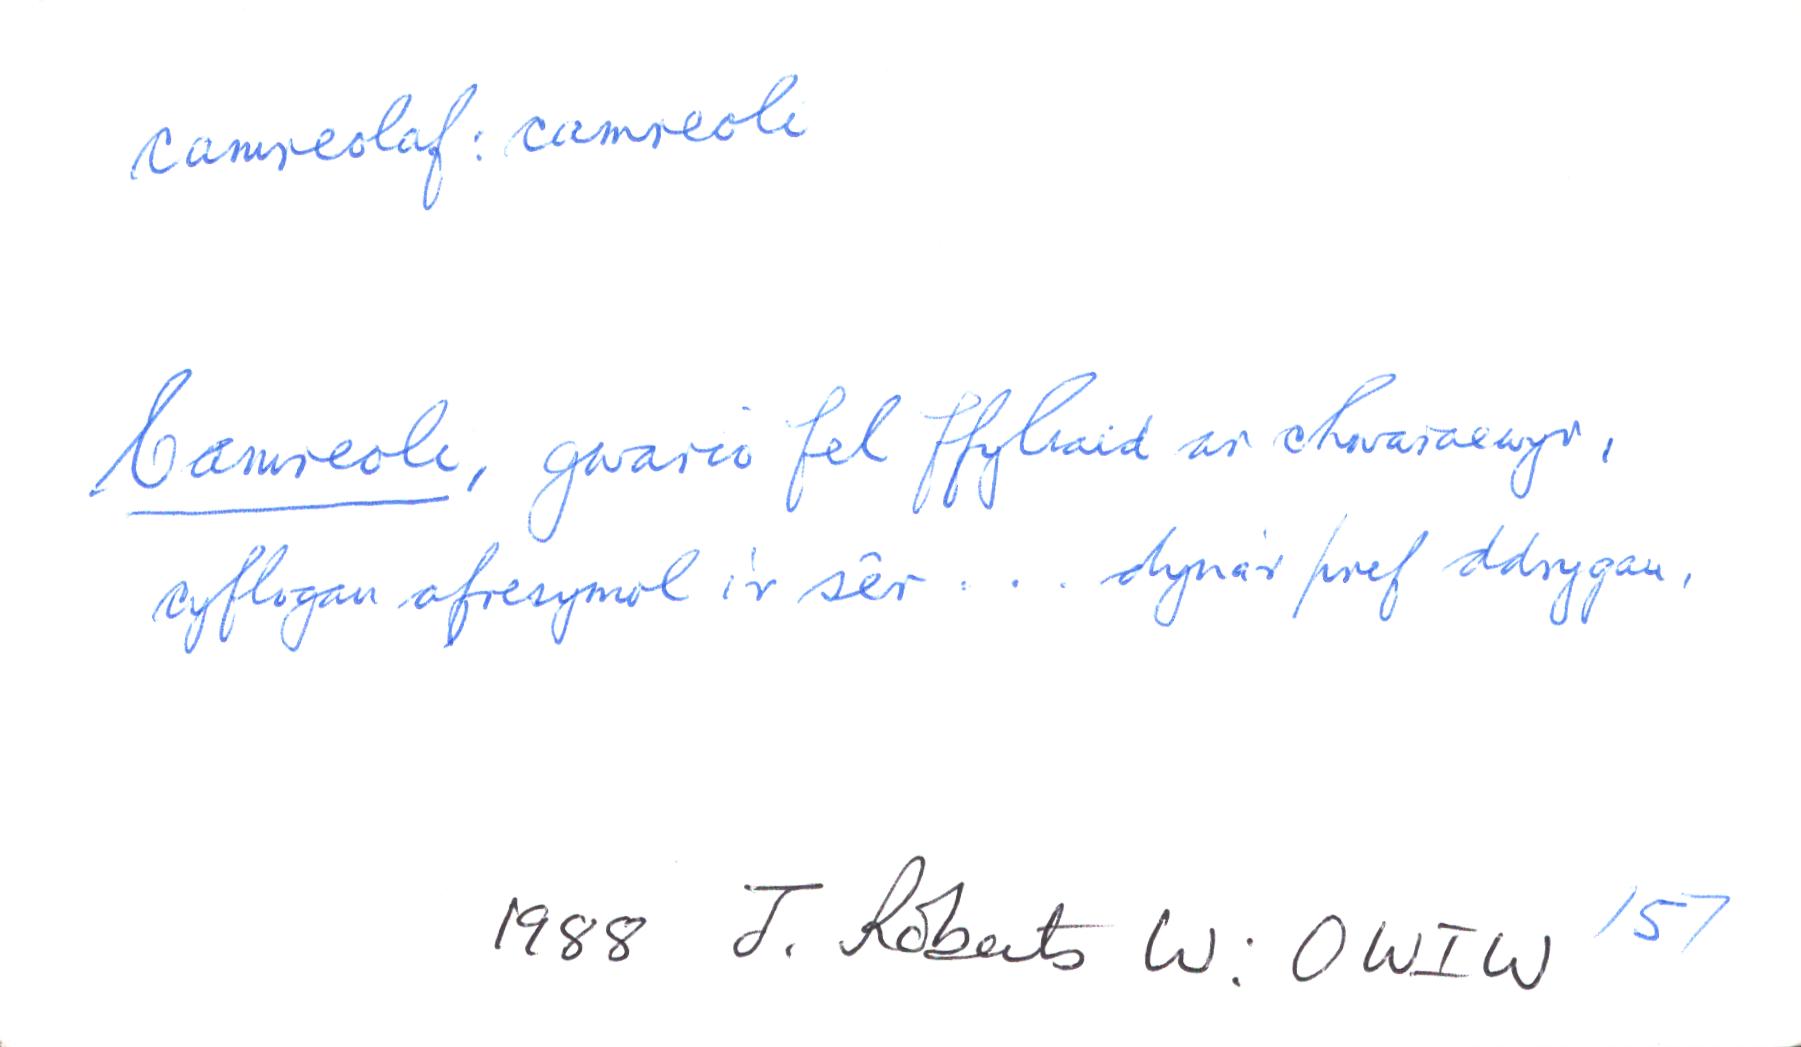 camreolaf: camreoli
Camreoli, gwario fel ffyliaid ar chwaraewyr,
cyflogau afresymol i'r sêr . . . dyna'r prif ddrygau,
1988 J. Roberts W: OWIW 157